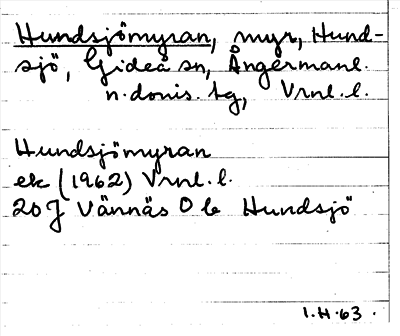 Hundsjömyran, myr, Hund-
sjö, Gideå sn, Ångermanl.
n. doms. tg, Vrnl. l.
Hundsjömyran
ek (1962) Vrnl. l.
20 J Vännäs 0 b Hundsjö
I.H. 63.